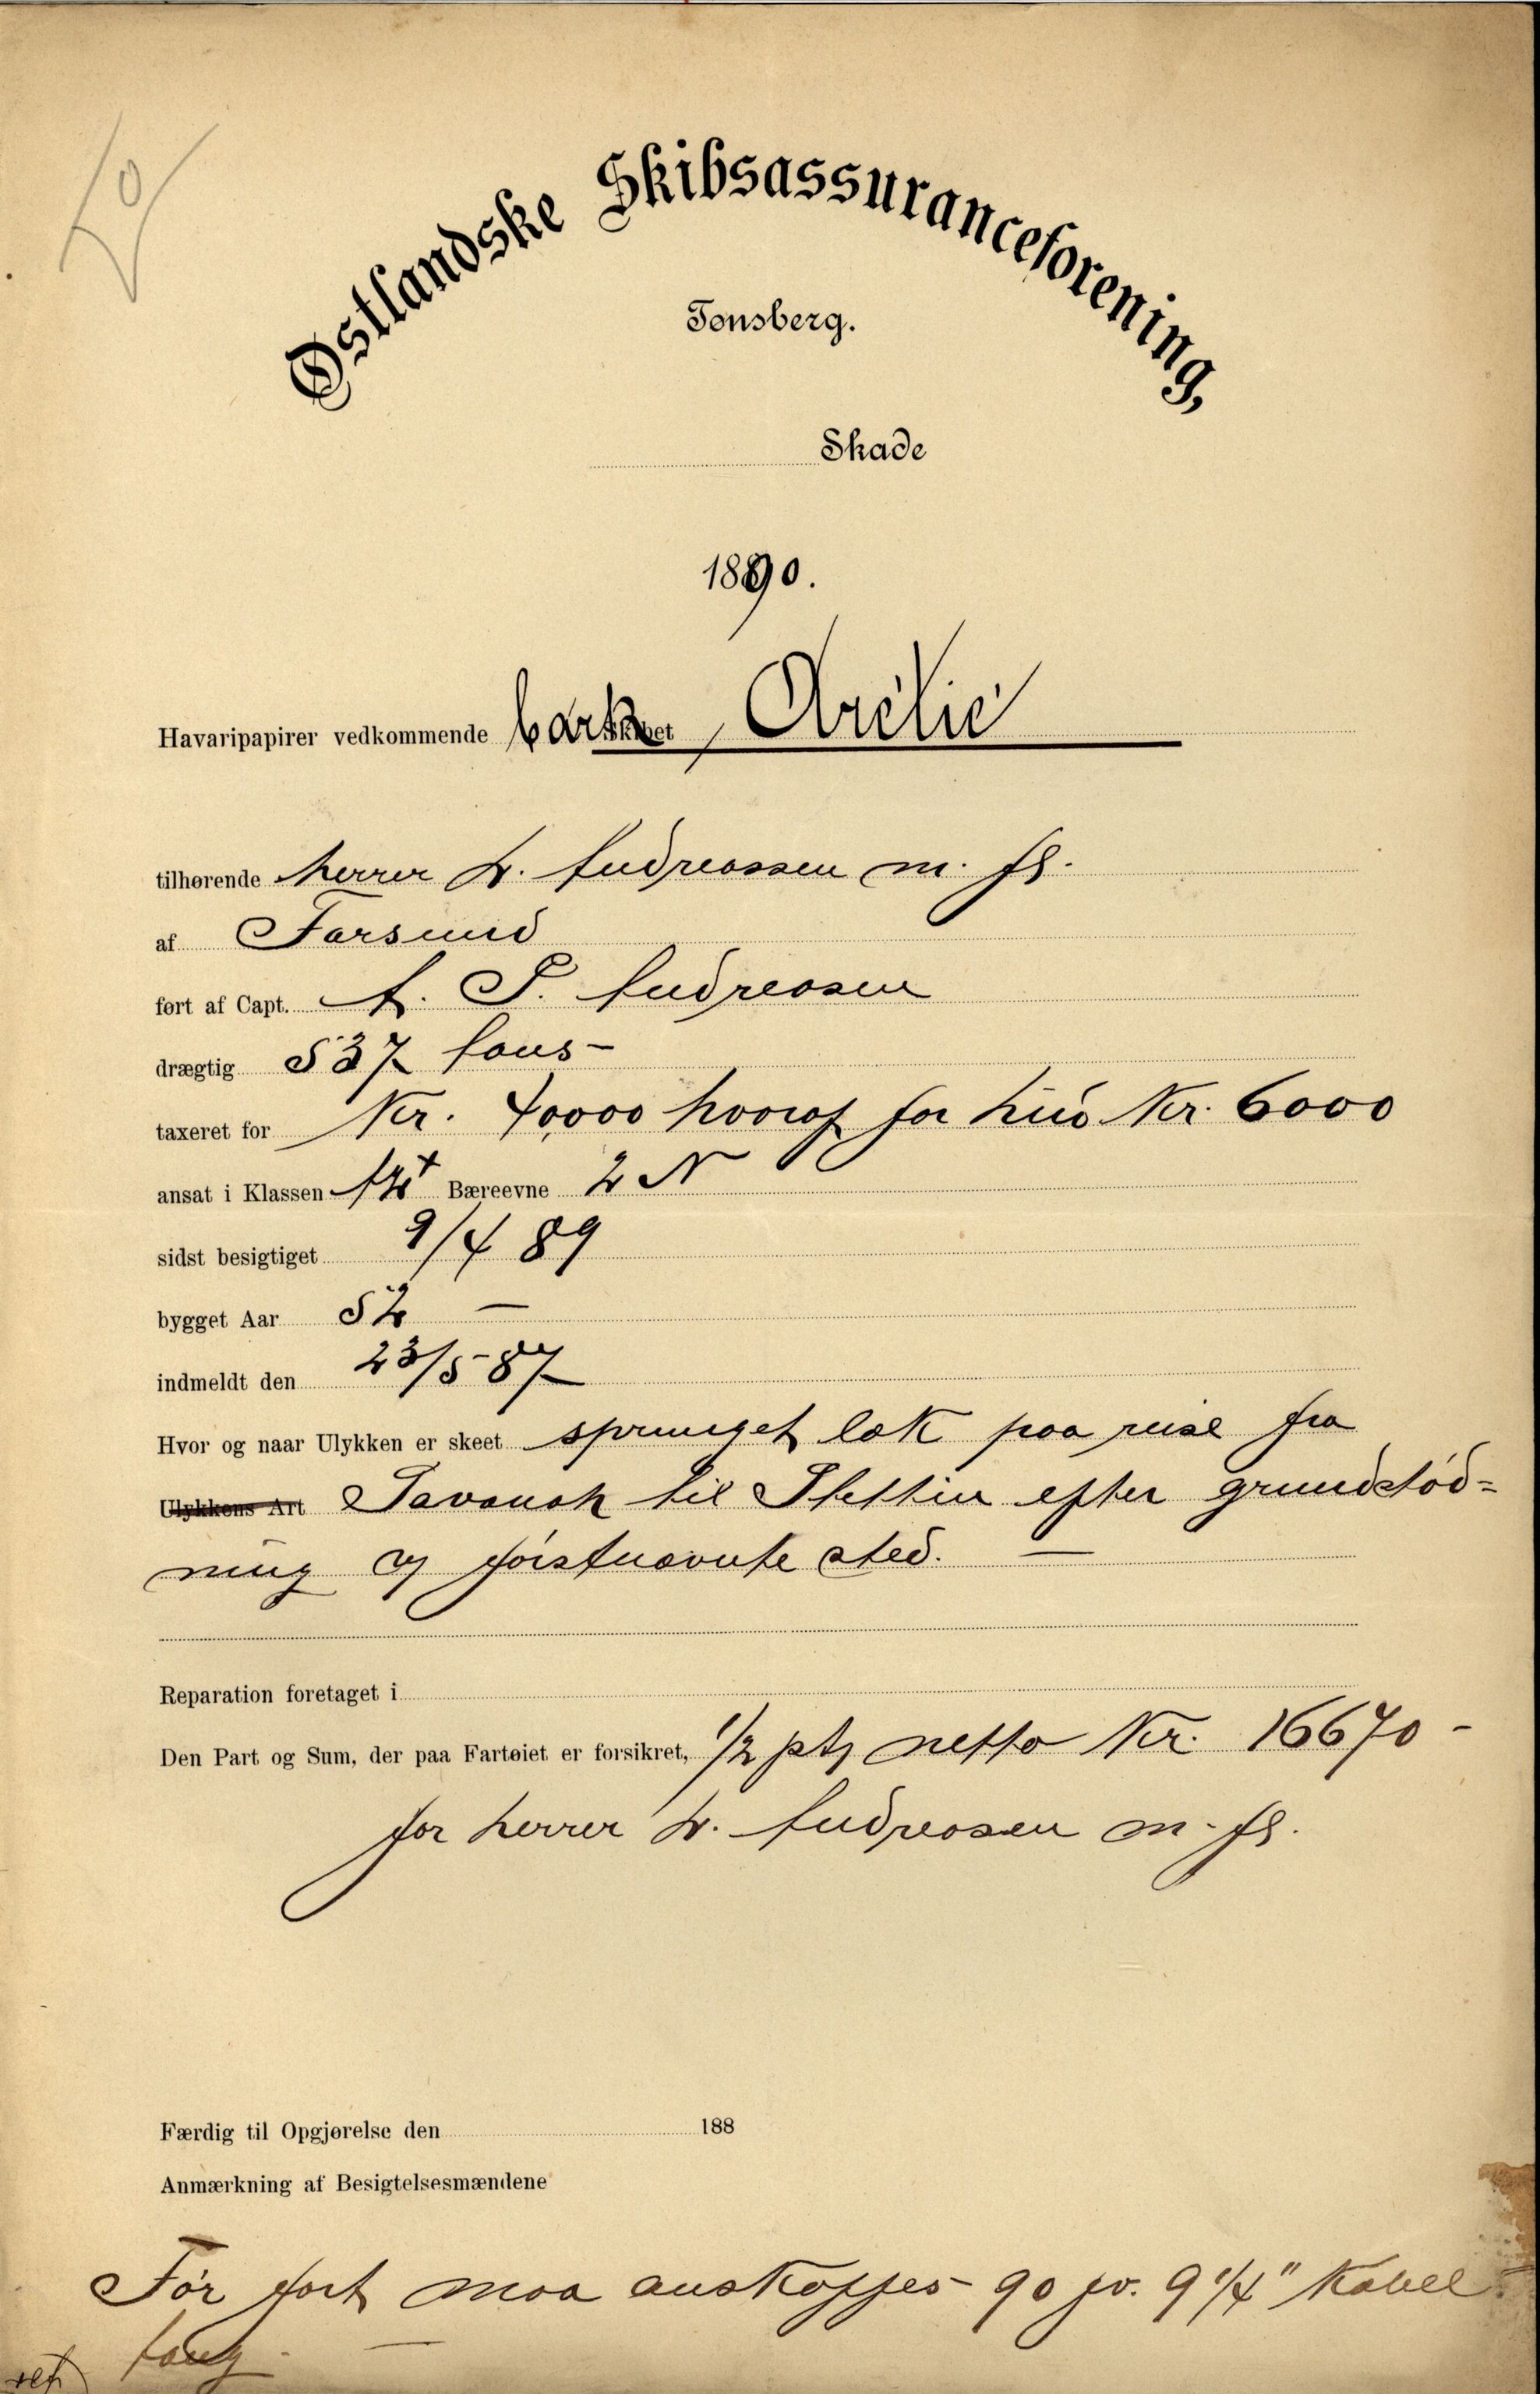 Østlandske Skibsassuranceforening,
Tønsberg.
Skade
1890.
Havaripapirer vedkommende bark Arctic
tilhørende herrer L. Andreassen m. fl.
af Farsund
ført af Capt. A. S. Andreasen
drægtig 537 tons -
taxeret for Kr. 40,000 hvoraf for hud Kr. 6000
ansat i Klassen Bæreevne 2 N
sidst besigtiget 9/4 89
bygget Aar 52 —
indmeldt den 23/5 87
Hvor og naar Ulykken er skeet sprunget læk paa reise fra
Ulykkens Art Savanah til Stettin efter grundstød-
ning af førstnævnte sted. —
Reparation foretaget i
Den Part og Sum, der paa Fartøiet er forsikret, 1/2 pt, netto Kr. 16670 -
for herrer L. Andreasen m. fl.
Færdig til Opgjørelse den 188
Anmærkning af Besigtelsesmændene
Før fart maa anskaffes 90 fv. 9 1/4" Kabel
toug. —